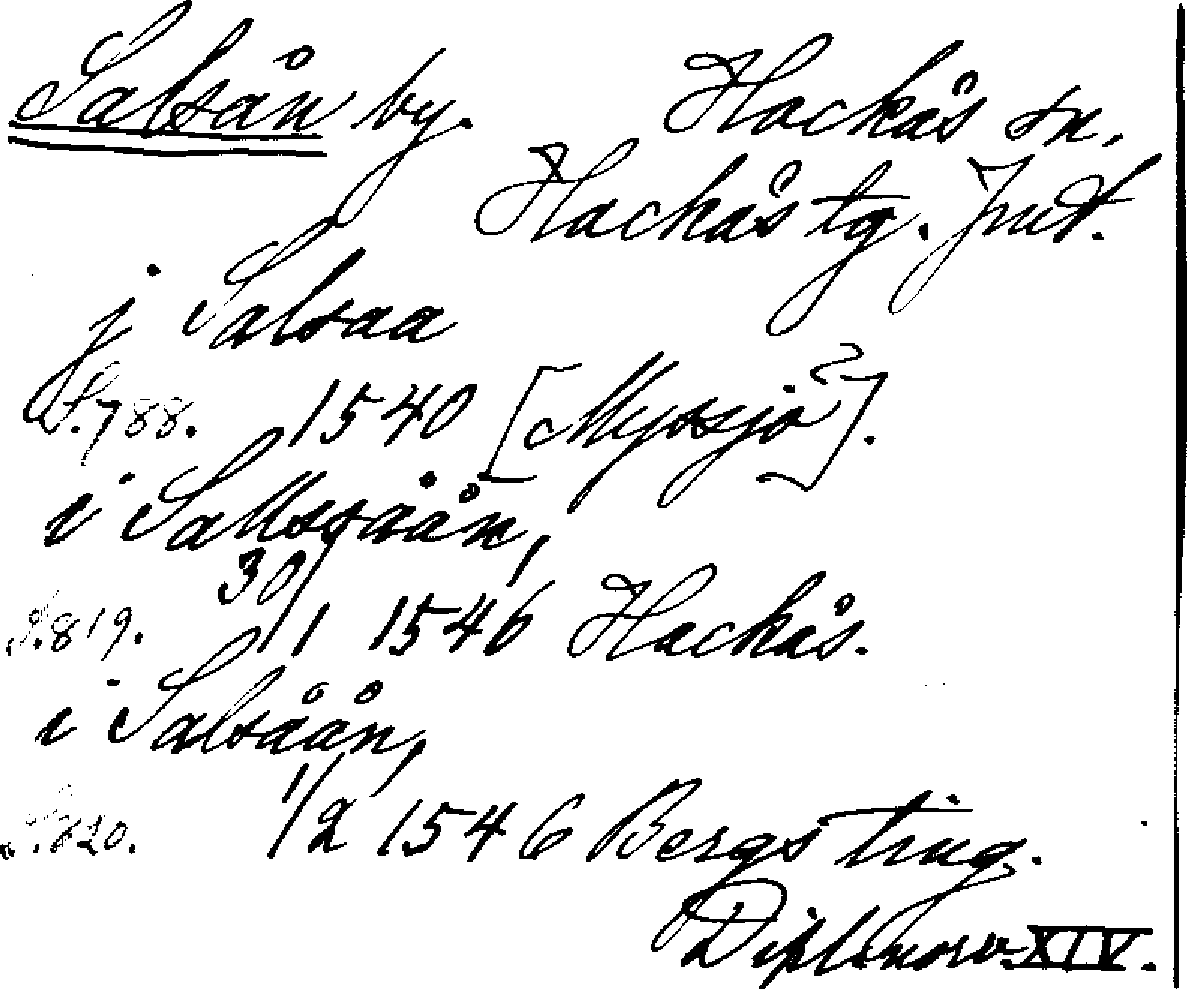 Salsån by. Hackås sn.
Hackås tg. Jmt.
j Salsaa
S. 788. 1540 [Myssjö?].
i Sallssåån,
S. 819. 30/1 1546 Hackås.
i Salsåån,
S. 820. 1/2 1546 Bergs ting.
Dipl. norv. XIV.